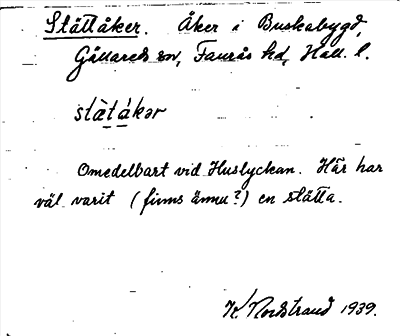 Slättåker. Åker i Buskabygd,
Gällareds sn, Faurås hd, Hall. l.
slätåkər
Omedelbart vid Huslyckan. Här har
väl varit (finns ännu?) en slätta.
K. Nordstrand 1939.